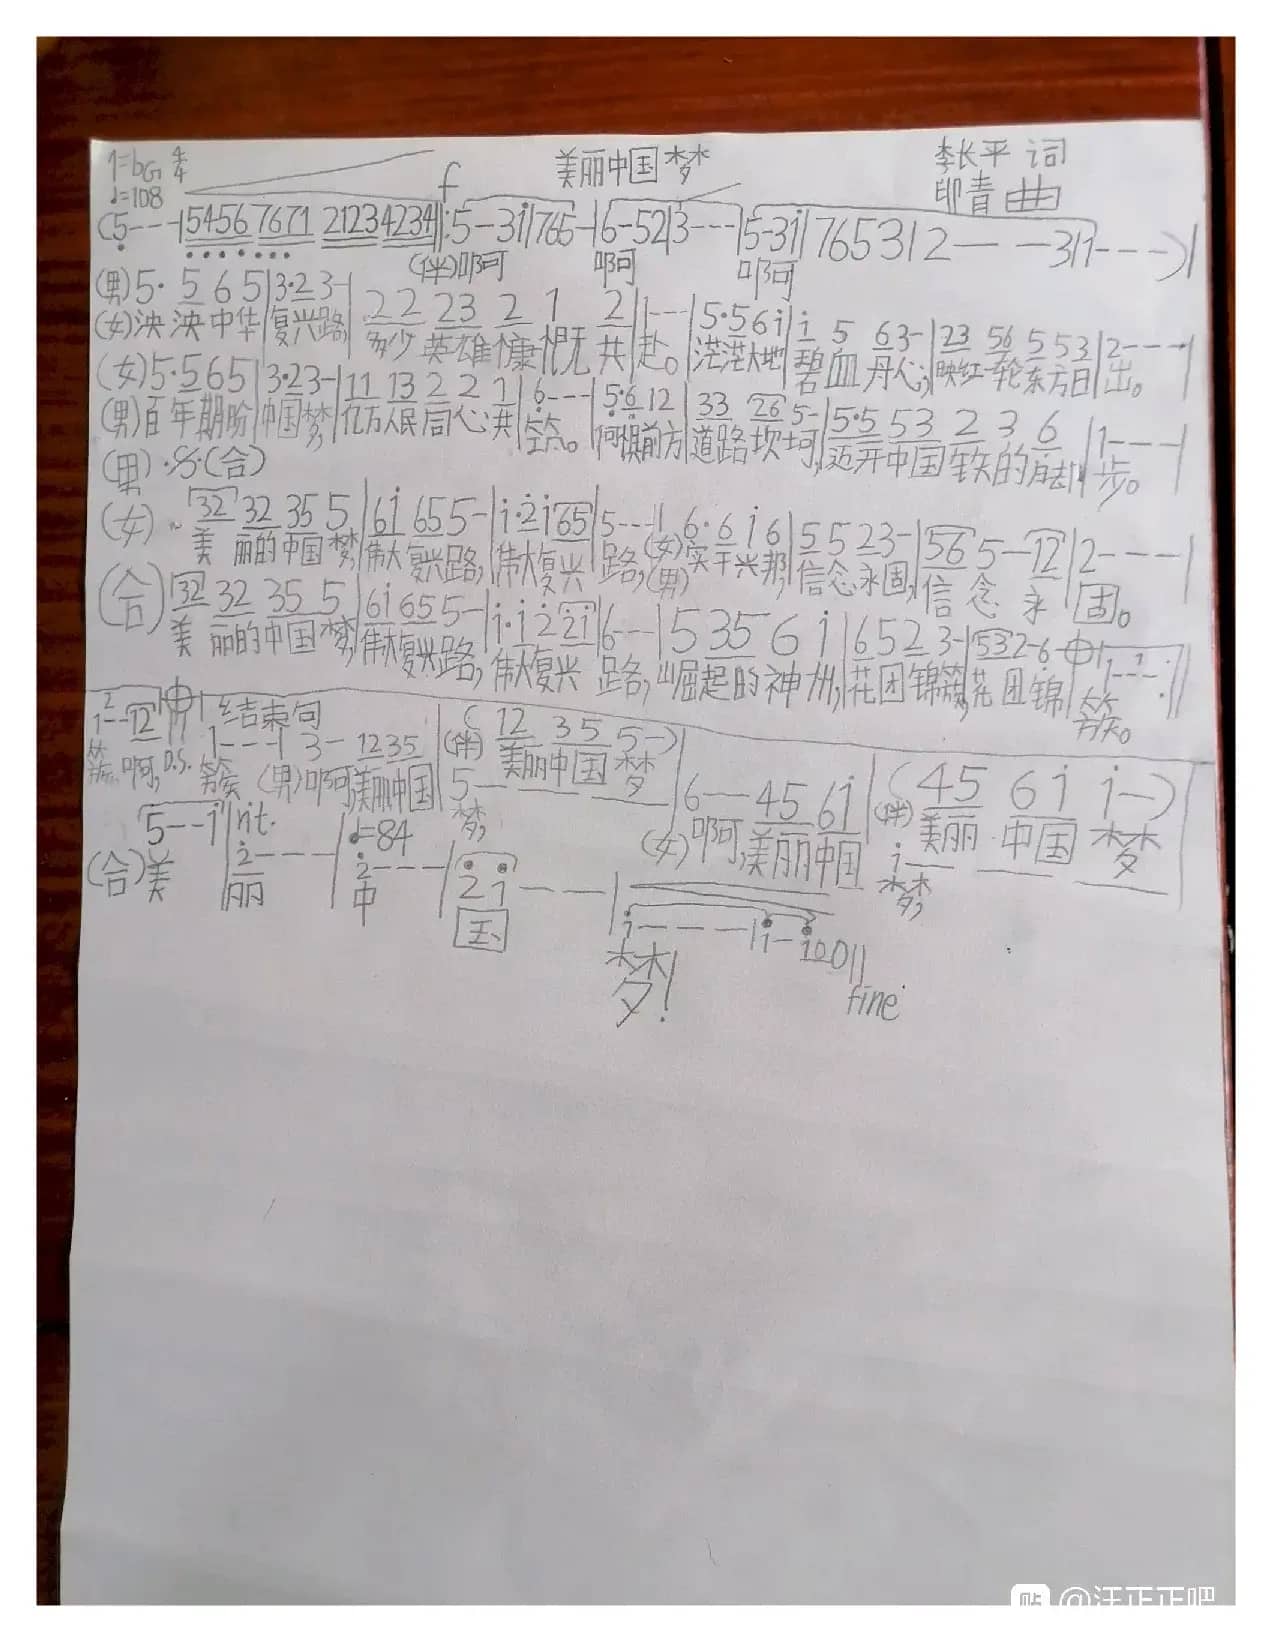 1=bG 4/4 美丽中国梦 李长平 词
♩=108 f 印青 曲
(5---|5456 7671 2123 4234‖:5--3i|765-|6-52|3---|5-3i|7653|2---31|1---)|
(伴)啊 啊 啊
(男)5· 5 6 5|3·2 3-|2 2 23 2 1 2|1---|5·5 6 i|i 5 6 3-|23 56 5 53|2---|
(女)泱 泱 中华|复兴路,|多少 英雄 慷慨 共|赴。|茫茫大地|碧血 丹心,|映红一轮东方日|出。
(女)5·5 6 5|3·2 3-|11 13 2 2 1|6---|5·6 12|33 26 5-|5·5 53 2 3 6|1---|
(男)百年期盼|中国梦,|亿万人民同心共|筑。|何惧前方|道路坎坷,|迈开中国铁的脚|步。
(男)·S·(合)
(女) 32 32 35 5|6i 65 5-|i·2 i 65|5---|6·6 i 6|5 5 2 3-|56 5-12|2---|
美 丽的中国梦,|伟大复兴路,|伟大复兴|路,|(女)(男)实干兴邦,|信念永固,|信 念 永|固。
(合)32 32 35 5|6i 65 5-|i·i 2 2i|6---|5 35 6 i|6 5 2 3-|53 2-6|1---:‖
美 丽的中国梦,|伟大复兴路,|伟大复兴 路,|崛起的神州,|花团锦簇,|花 团 锦|簇。
2 结束句
1--12 1---|3-1235|(12 35 5-)
簇。啊, D.S. 簇 (男)啊,美丽中国 (伴)美丽中国 梦
5---
梦,
6--45 6i|(45 6i i-)
(女)啊,美丽中国 (伴)美丽 中国 梦
i---
梦,
5--i|rit. 2---|♩=84 2---|2i---|i---|i-i00‖
(合)美 丽 中 国 梦!
fine
@汪正正吧